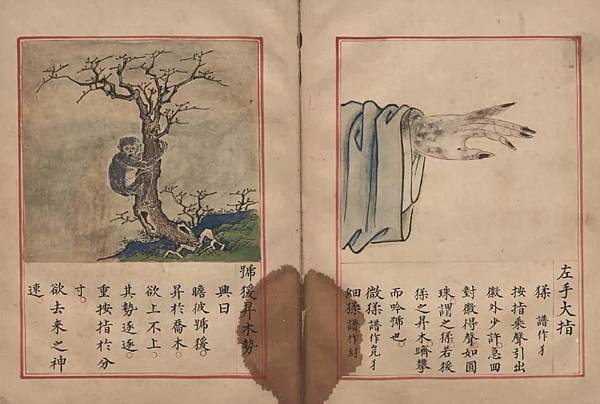 左手大指
猱 譜作犭
按指乘聲引出
徽外少許急回
對徽得聲如圓
珠謂之猱若猨
猱之昇木躋攀
而吟號也。
微猱 譜作
細猱 譜作
號猨昇木勢
興曰
瞻彼號猨。
昇於喬木。
欲上不上。
其勢逐逐。
重按指於分
寸。
欲去來之神
速